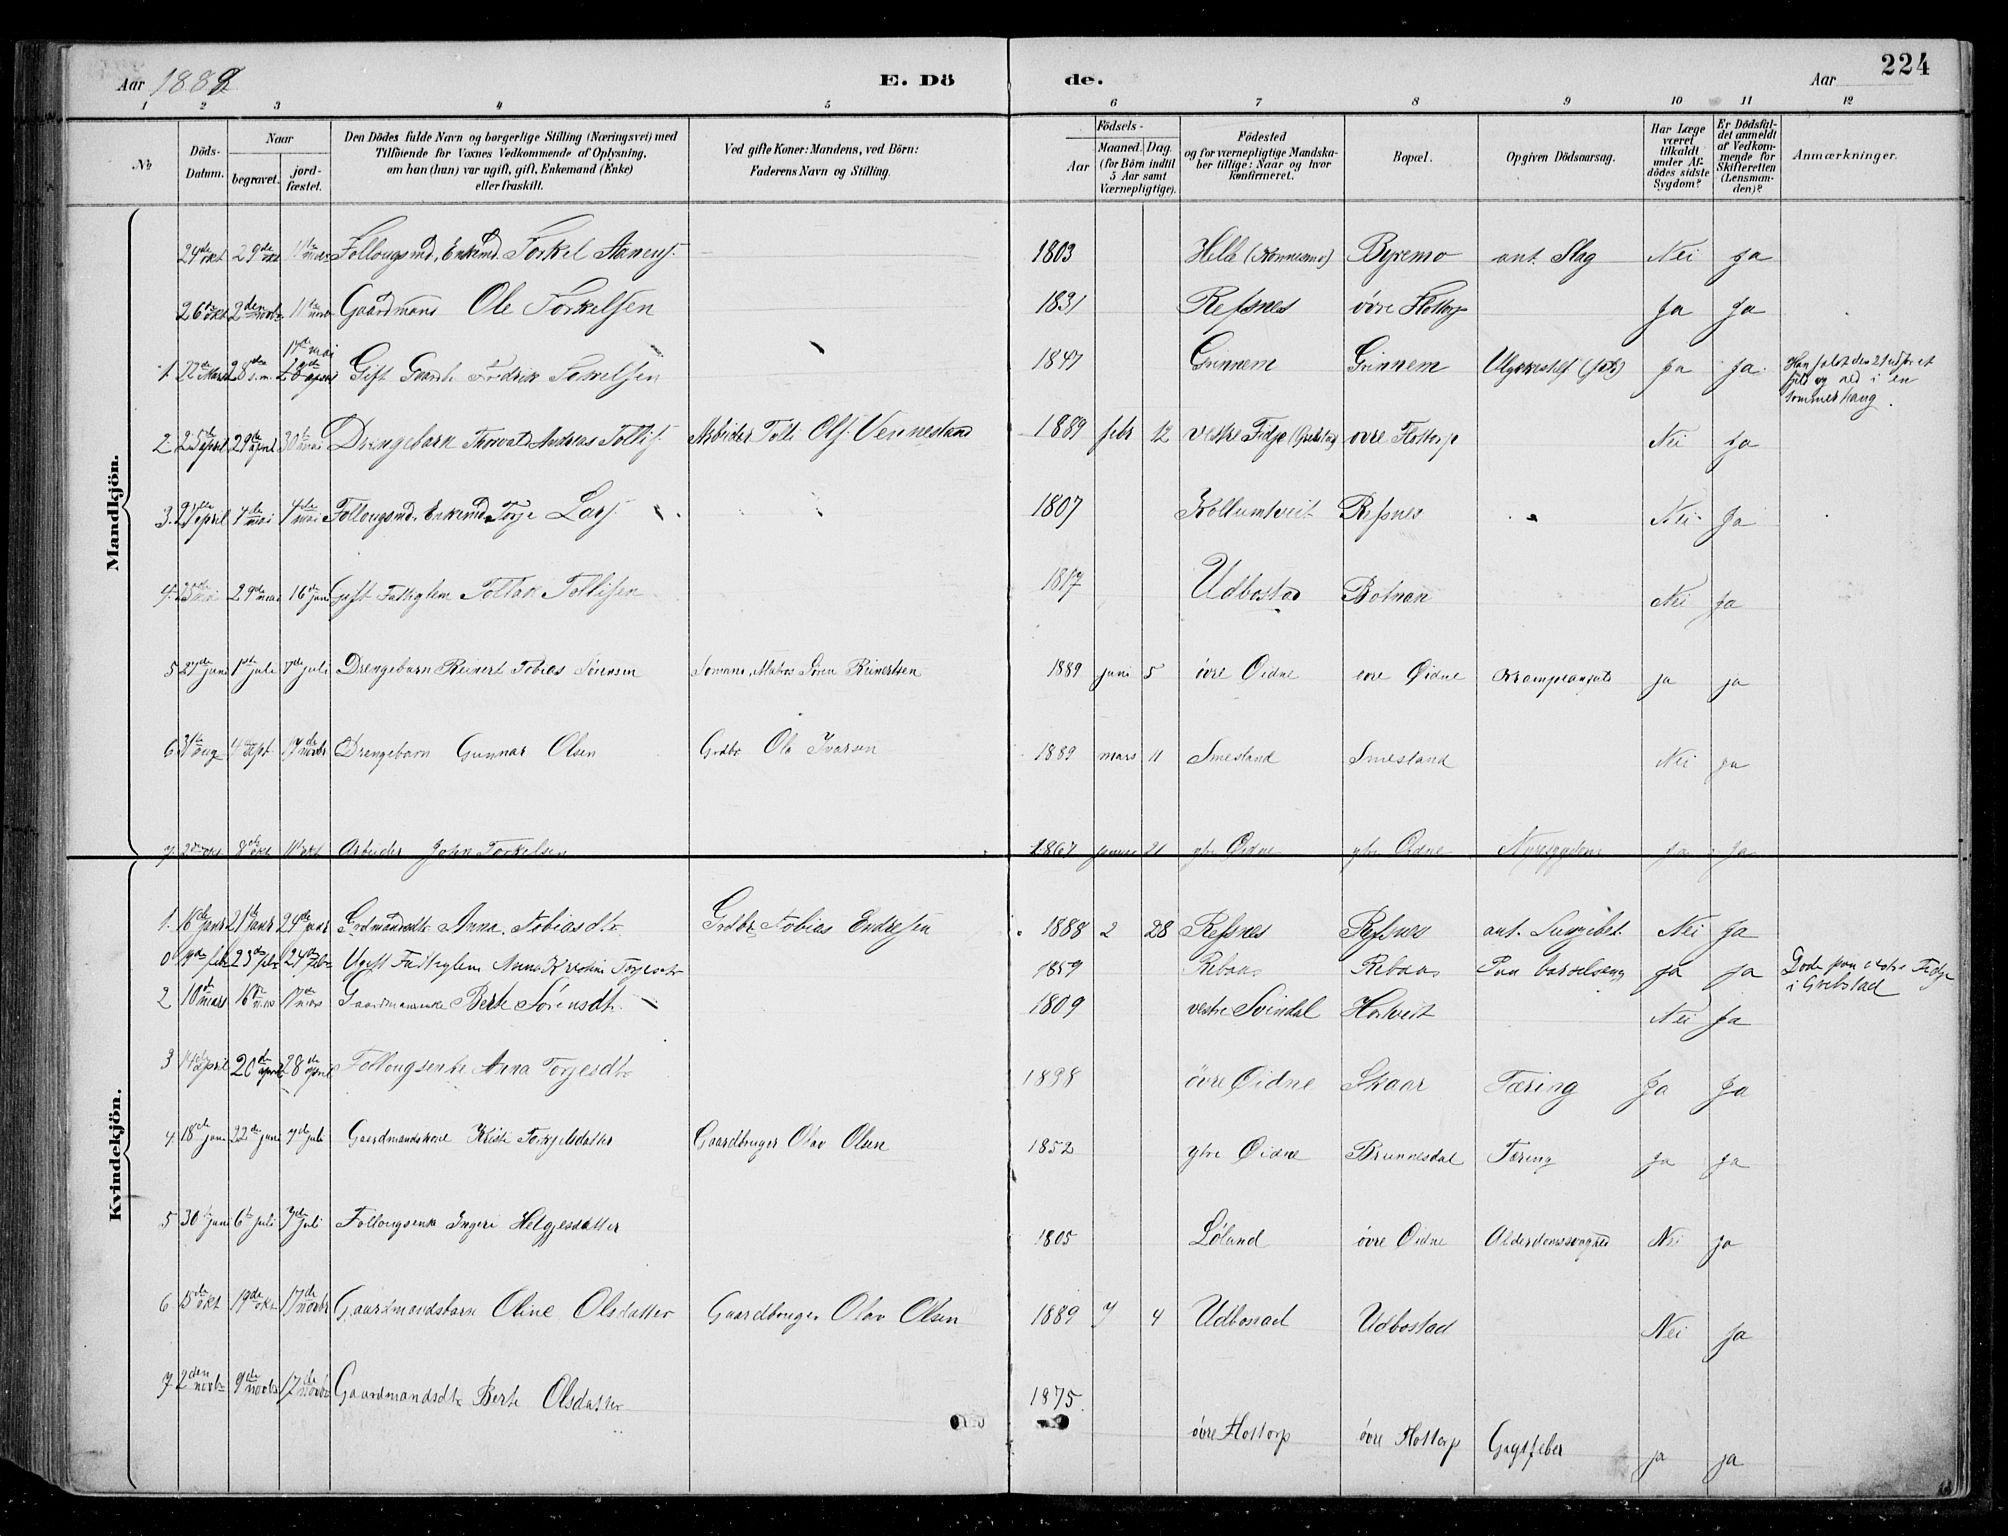 224
Aar 1889 E. Döde. Aar
1 2 3 4 5 6 7 8 9 10 11 12
No
Döds-Datum.
Naar
begravet.
jordfæstet.
Den Dödes fulde Navn og borgerlige Stilling (Næringsvei) med
Tilföiende for Voxnes Vedkommende af Oplysning,
om han (hun) var ugift, gift, Enkemand (Enke)
eller fraskilt.
Ved gifte Koner: Mandens, ved Börn:
Faderens Navn og Stilling.
Födsels-
Aar
Maaned. Dag.
(for Börn indtil
5 Aar samt
Værnepligtige).
Födested
og for værnepligtige Mandskaber tillige: Naar og hvor
konfirmeret.
Bopæl.
Opgiven Dödsaarsag.
Har Læge
været
tilkaldt
under Afdödes sidste
Sygdom?
Er Dödsfaldet anmeldt
af Vedkommende for
Skifteretten
(Lensmanden)?
Anmærkninger.
Mandkjön.
24de okt 29de okt 11te Follougsmd, Enkemd. Torkel Aanens. 1803 Helle (Konnesmo) Byremo ant. Slag Nei Ja
26te okt 2den novbr 11te novbr Gaardmand Ole Torkelsen 1831 Refsnes övre Flottorp Ja Ja
17de mai
1. 22de Marts 28de s.m. 28de april Gift Gaardb Fredrik 1847 Grinnem Grinnem Ja Ja
i en
2 25de april 29de april 30te mai Drengebarn Thorvald Andreas Tollifs. Arbeider Tolli Ols. Vennestand 1889 febr 12 vestre Fidje (Grebstad) ovre Flottorp Nei Ja
3. 27de april 7de mai 4de mai Follougsmd. Enkemd. Torje Lars. 1807 Kollumtveit Refsnes Nei Ja
4. 23de mai 29de mai 16de juni Gift Fattiglem Tollak Tollifsen 1817 Udbostad Botnan Nei Ja
5 27de juni 1ste juli 7de juli Drengebarn Reinert Tobias Sörensen Sömand, Matros Sören Reinertsen 1889 juni 5 övre Öidne övre Öidne Krampeanfald ja ja
6 31te aug 4de sept 17de novbr Drengebarn Gunnar Olsen Grdbr Ole Ivarsen 1889 mars 11 Smestand Smestand Nei ja
7 2den okt 8de okt 11te okt Arbeider John Torkelsen 1867 januar 21 ytre Öidne ytre Öidne Nyresygdom ja Ja
Kvindekjön.
1. 16de janr 21de janr 24de janr Grdmandsdtr Anna Tobiasdtr. Grdbr Tobias Endresen 1888 2 28 Refsnes Refsnes ant. Lungebet. Nei Ja
0 19de febr 23de febr 24de febr Ugift Fattiglem Anna Kristine Torjesdtr 1859 Rebaas Rebaas Paa barselseng ja ja Döde paa vestre Fidje
i Grebstad
2 10de mars 16de mars 17de mars Gaardmansenke Berte Sörensdtr. 1809 vestre Svindal Hortveit Nei Ja
3 14de april 20de april 28de april Follougsenke Anna Torjesdtr 1838 övre Öidne Skaar Tæring Ja Ja
4. 18de juni 22de juni 7de juli Gaardmandskone Kristi Torkjelsdatter Gaardbruger Olav Olsen 1852 ytre Öidne Brunnesdal Tæring ja ja
5 30te juni 6te juli 7de juli Follougsenke Ingeri Helgjesdatter 1805 Løland övre Öidne Alderdomssvaghed Nei ja
6 15de okt 19de okt 17de novbr Gaardmandsbarn Oline Olsdatter Gaardbruger Olav Olsen 1889 7 4 Udbostad Udbostad Nei Ja
7 2den novbr 9de novbr 17de novbr Gaardmandsdtr Berte Olsdatter 1875. övre Flottorp övre Flottorp Gigtfeber ja ja